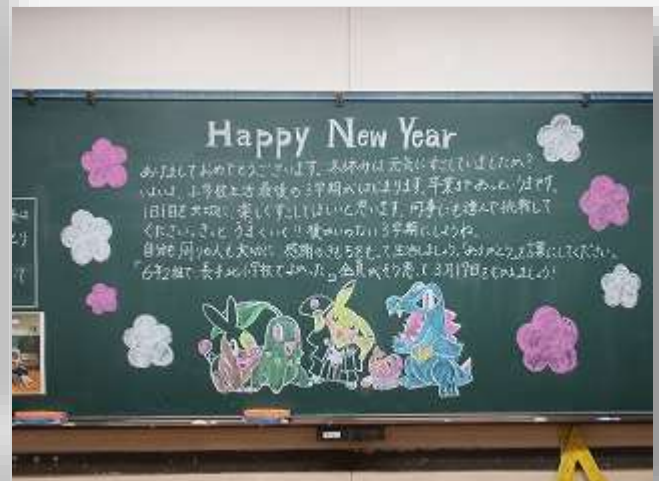 Happy New Year
あけましておめでとうございます。冬休みは元気にすごしていましたか?
いよいよ、小学校生活最後の3学期がはじまります。卒業まであっというまです。
1日1日を大切に、楽しくすごしてほしいと思います。何事にも進んで挑戦して
ください。きっと、うまくいく!!後かいのない3学期にしようね。
自分も周りの人も大切に、感謝の気もちをもって生活しましょう。ありがとうを言葉にしてください。
「6年2組で、長小学校でよかった。」全員がそう思って3月19日をむかえましょう!